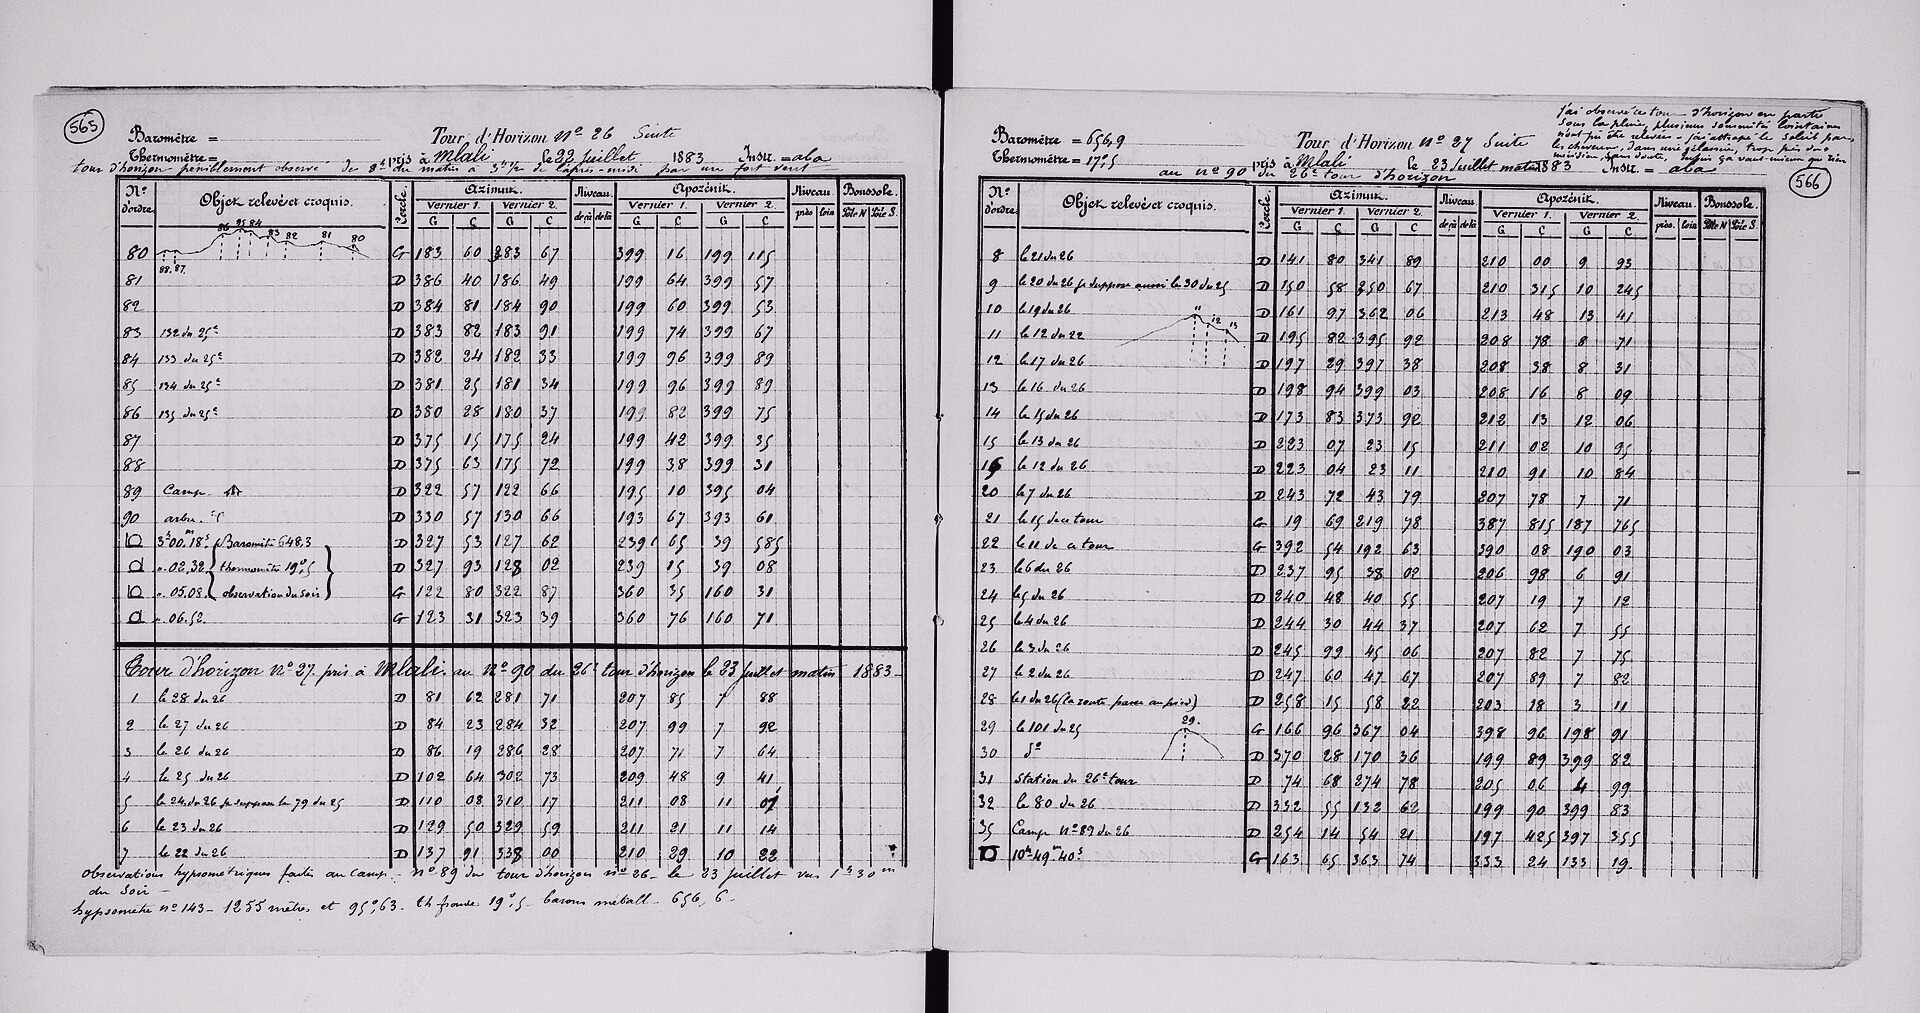 565
Baromètre =
Tour d'Horizon No 26 Suite
Thermomètre =
pris à Mlali le 22 Juillet 1883 Instr. = aba
tour d'horizon péniblement observé de 8h du matin à 3h 1/2 de l'après-midi par un fort vent
No d'ordre Objets relevés et croquis. Cercle Azimuk. Niveau. Apozénit. Niveau. Boussole.
Vernier 1. Vernier 2. deçà delà Vernier 1. Vernier 2. près loin Pôle N Pôle S.
G C G C G C G C
86 85 84 83 82 81 80
80 G 183 60 383 67 399 16 199 115
88. 87.
81 D 386 40 186 49 199 64 399 57
82 D 384 81 184 90 199 60 399 53
83 132 du 25e D 383 82 183 91 199 74 399 67
84 133 du 25e D 382 24 182 33 199 96 399 89
85 134 du 25e D 381 25 181 34 199 96 399 89
86 135 du 25e D 380 28 180 37 199 82 399 75
87 D 375 15 175 24 199 42 399 35
88 D 375 63 175 72 199 38 399 31
89 Camp D 322 57 122 66 195 10 395 04
90 arbre. D 330 57 130 66 193 67 393 61
3h 00m 18s Baromètre 648.3 D 327 53 127 62 239 65 39 585
" 02.32 thermomètre 19°,5 D 327 93 128 02 239 15 39 08
" 05.08 observation du soir G 122 80 322 87 360 35 160 31
" 06.52 G 123 31 323 39 360 76 160 71
Tour d'horizon No 27. pris à Mlali. au No 90 du 26e tour d'horizon le 23 Juillet matin 1883
1 le 28 du 26 D 81 62 281 71 207 85 7 88
2 le 27 du 26 D 84 23 284 32 207 99 7 92
3 le 26 du 26 D 86 19 286 28 207 71 7 64
4 le 25 du 26 D 102 64 302 73 209 48 9 41
5 le 24 du 26 je suppose le 79 du 25 D 110 08 310 17 211 08 11 01
6 le 23 du 26 D 129 50 329 59 211 21 11 14
7 le 22 du 26 D 137 91 338 00 210 29 10 22
observations hypsométriques faites au camp - no 89 du tour d'horizon no 26 - le 23 Juillet vers 1h 30m
du soir -
hypsomètre no 143 - 1255 mètres et 95°,63. th fronde 19°,5 - barom métall - 656,6 -
566
Baromètre = 656,9
Tour d'Horizon No 27 Suite
Thermomètre = 17°,5
pris à Mlali le 23 Juillet matin 1883 Instr. = aba
au no 90 du 26e tour d'horizon
j'ai observé ce tour d'horizon en partie
sous la pluie, plusieurs sommités lointaines
n'ont pu être relevées - j'ai attrapé le soleil par
les cheveux, dans une éclaircie, trop près du
méridien, sans doute, enfin ça vaut mieux que rien
No d'ordre Objets relevés et croquis. Cercle Azimuk. Niveau. Apozénit. Niveau. Boussole.
Vernier 1. Vernier 2. deçà delà Vernier 1. Vernier 2. près. loin Pôle N Pôle S.
G C G C G C G C
8 le 21 du 26 D 141 80 341 89 210 00 9 93
9 le 20 du 26 je suppose aussi le 30 du 25 D 150 58 350 67 210 315 10 245
10 le 19 du 26 D 161 97 362 06 213 48 13 41
11 12 13
11 le 12 du 22 D 195 82 395 92 208 78 8 71
12 le 17 du 26 D 197 29 397 38 208 38 8 31
13 le 16 du 26 D 198 94 399 03 208 16 8 09
14 le 15 du 26 D 173 83 373 92 212 13 12 06
15 le 13 du 26 D 223 07 23 15 211 02 10 95
16 le 12 du 26 D 223 04 23 11 210 91 10 84
20 le 7 du 26 D 243 72 43 79 207 78 7 71
21 le 15 de ce tour G 19 69 219 78 387 815 187 765
22 le 11 de ce tour G 392 54 192 63 390 08 190 03
23 le 6 du 26 D 237 95 38 02 206 98 6 91
24 le 5 du 26 D 240 48 40 55 207 19 7 12
25 le 4 du 26 D 244 30 44 37 207 62 7 55
26 le 3 du 26 D 245 99 45 06 207 82 7 75
27 le 2 du 26 D 247 60 47 67 207 89 7 82
28 le 1 du 26 (la route passe au pied) D 258 15 58 22 203 18 3 11
29 le 101 du 25 29. G 166 96 367 04 398 96 198 91
30 do D 370 28 170 36 199 89 399 82
31 station du 26e tour D 74 68 274 78 205 06 4 99
32 le 80 du 26 D 332 55 132 62 199 90 399 83
35 Camp no 89 du 26 D 254 14 54 21 197 425 397 355
10h 49m 40s G 163 65 363 74 333 24 133 19